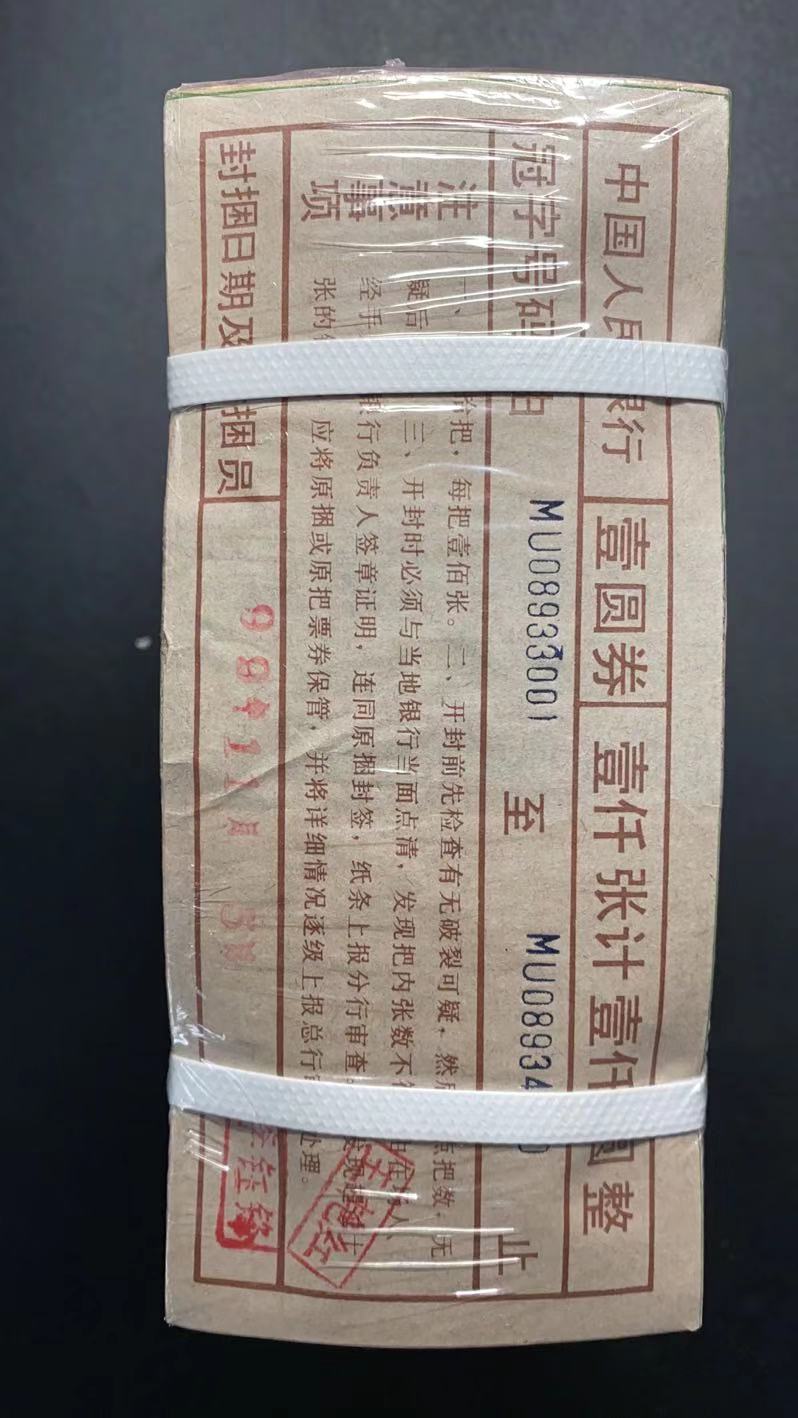 中国人民银行 壹圆券 壹仟张计壹仟圆整
冠字号码由 MU08933001 至 MU08934 止
注意事项
一、 拾把，每把壹佰张。二、开封前先检查有无破裂可疑，然后 点把数，无
疑后 三、开封时必须与当地银行当面点清，发现把内张数不
经手 银行负责人签章证明，连同原捆封签，纸条上报分行审查。
张的 应将原捆或原把票券保管，并将详细情况逐级上报总行 处理。
封捆日期及 捆员 98年11月